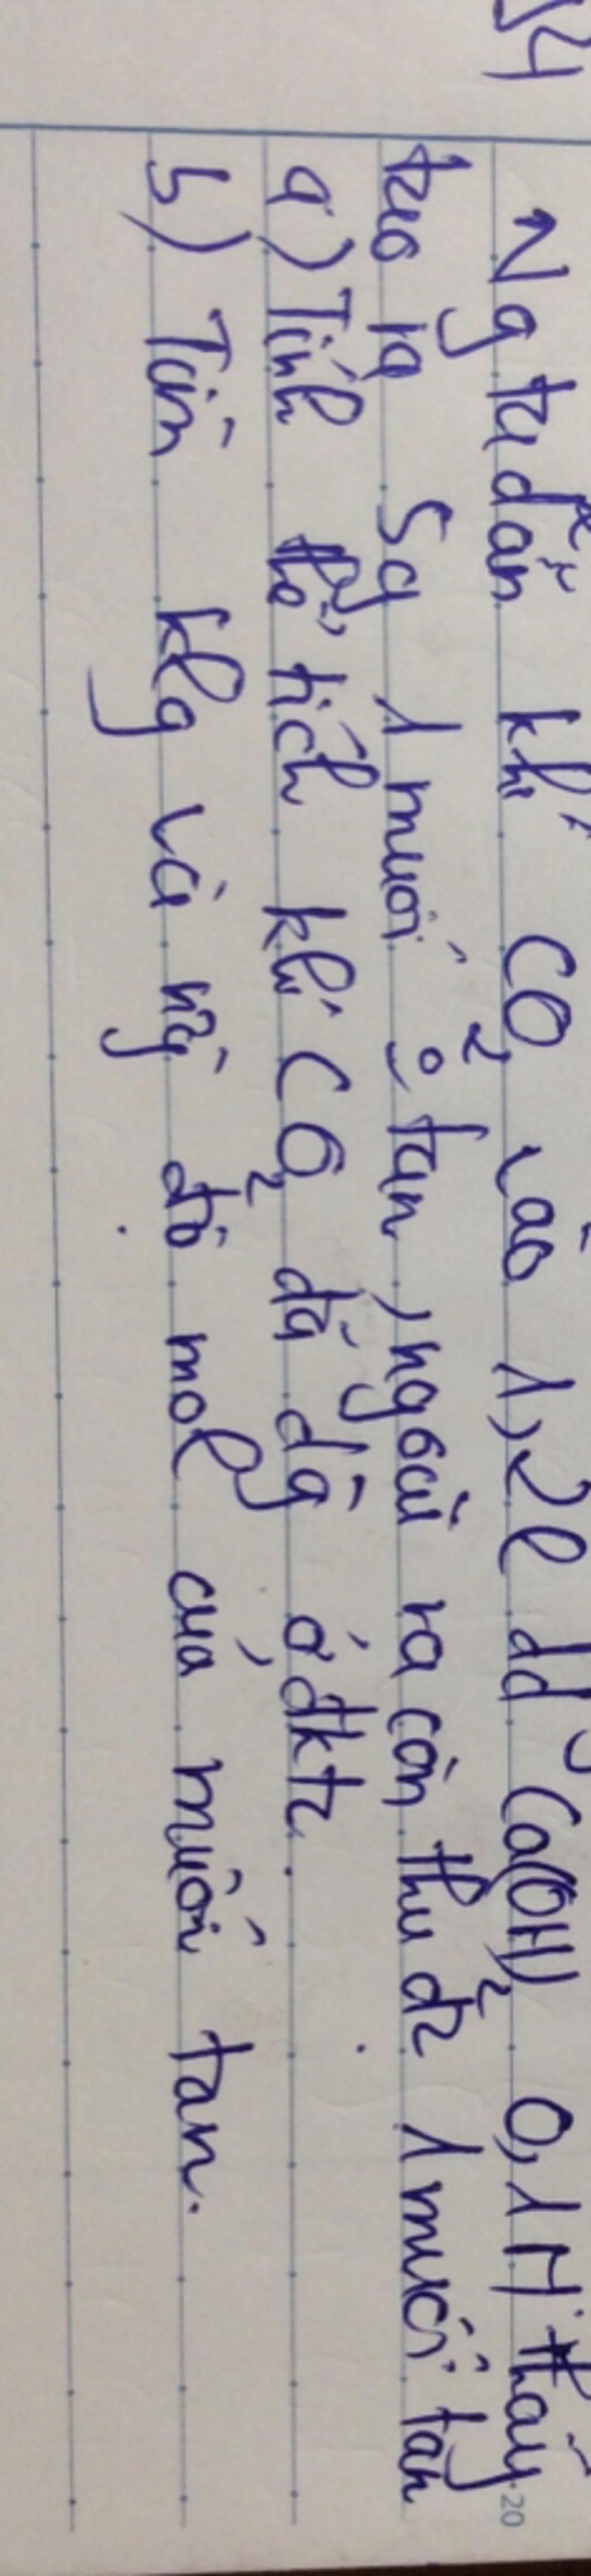 34
Ng ta dẫn khí CO2 vào 1,2l dd Ca(OH)2 0,1M thấy
tạo ra 5g 1 muối ko tan, ngoài ra còn thu đc 1 muối tan
a) Tính thể tích khí CO2 đã dùng ở đktc.
b) Tính klg và nồng độ mol của muối tan.
20